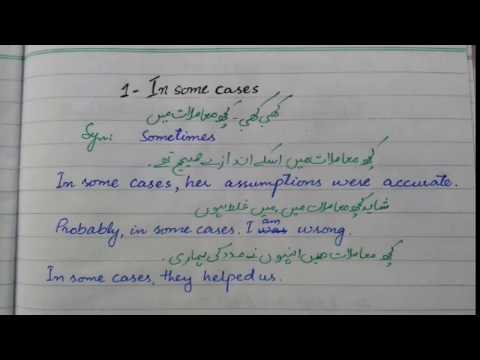 1- In some cases
کبھی کبھی۔ کچھ معاملات میں
Syn: Sometimes
کچھ معاملات میں اسکے اندازے صحیح تھے۔
In some cases, her assumptions were accurate.
شاید کچھ معاملات میں، میں غلط ہوں
Probably, in some cases. I was am wrong.
کچھ معاملات میں انہوں نے مدد کی ہماری۔
In some cases, they helped us.